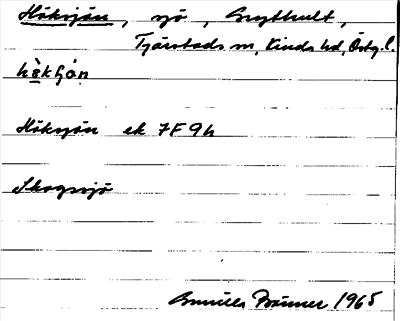 Höksjön, sjö, Brytthult,
Tjärstads sn, Kinds hd, Östg. l.
Höksjön ek 7F9h
Skogssjö
Gunilla Bränner 1965